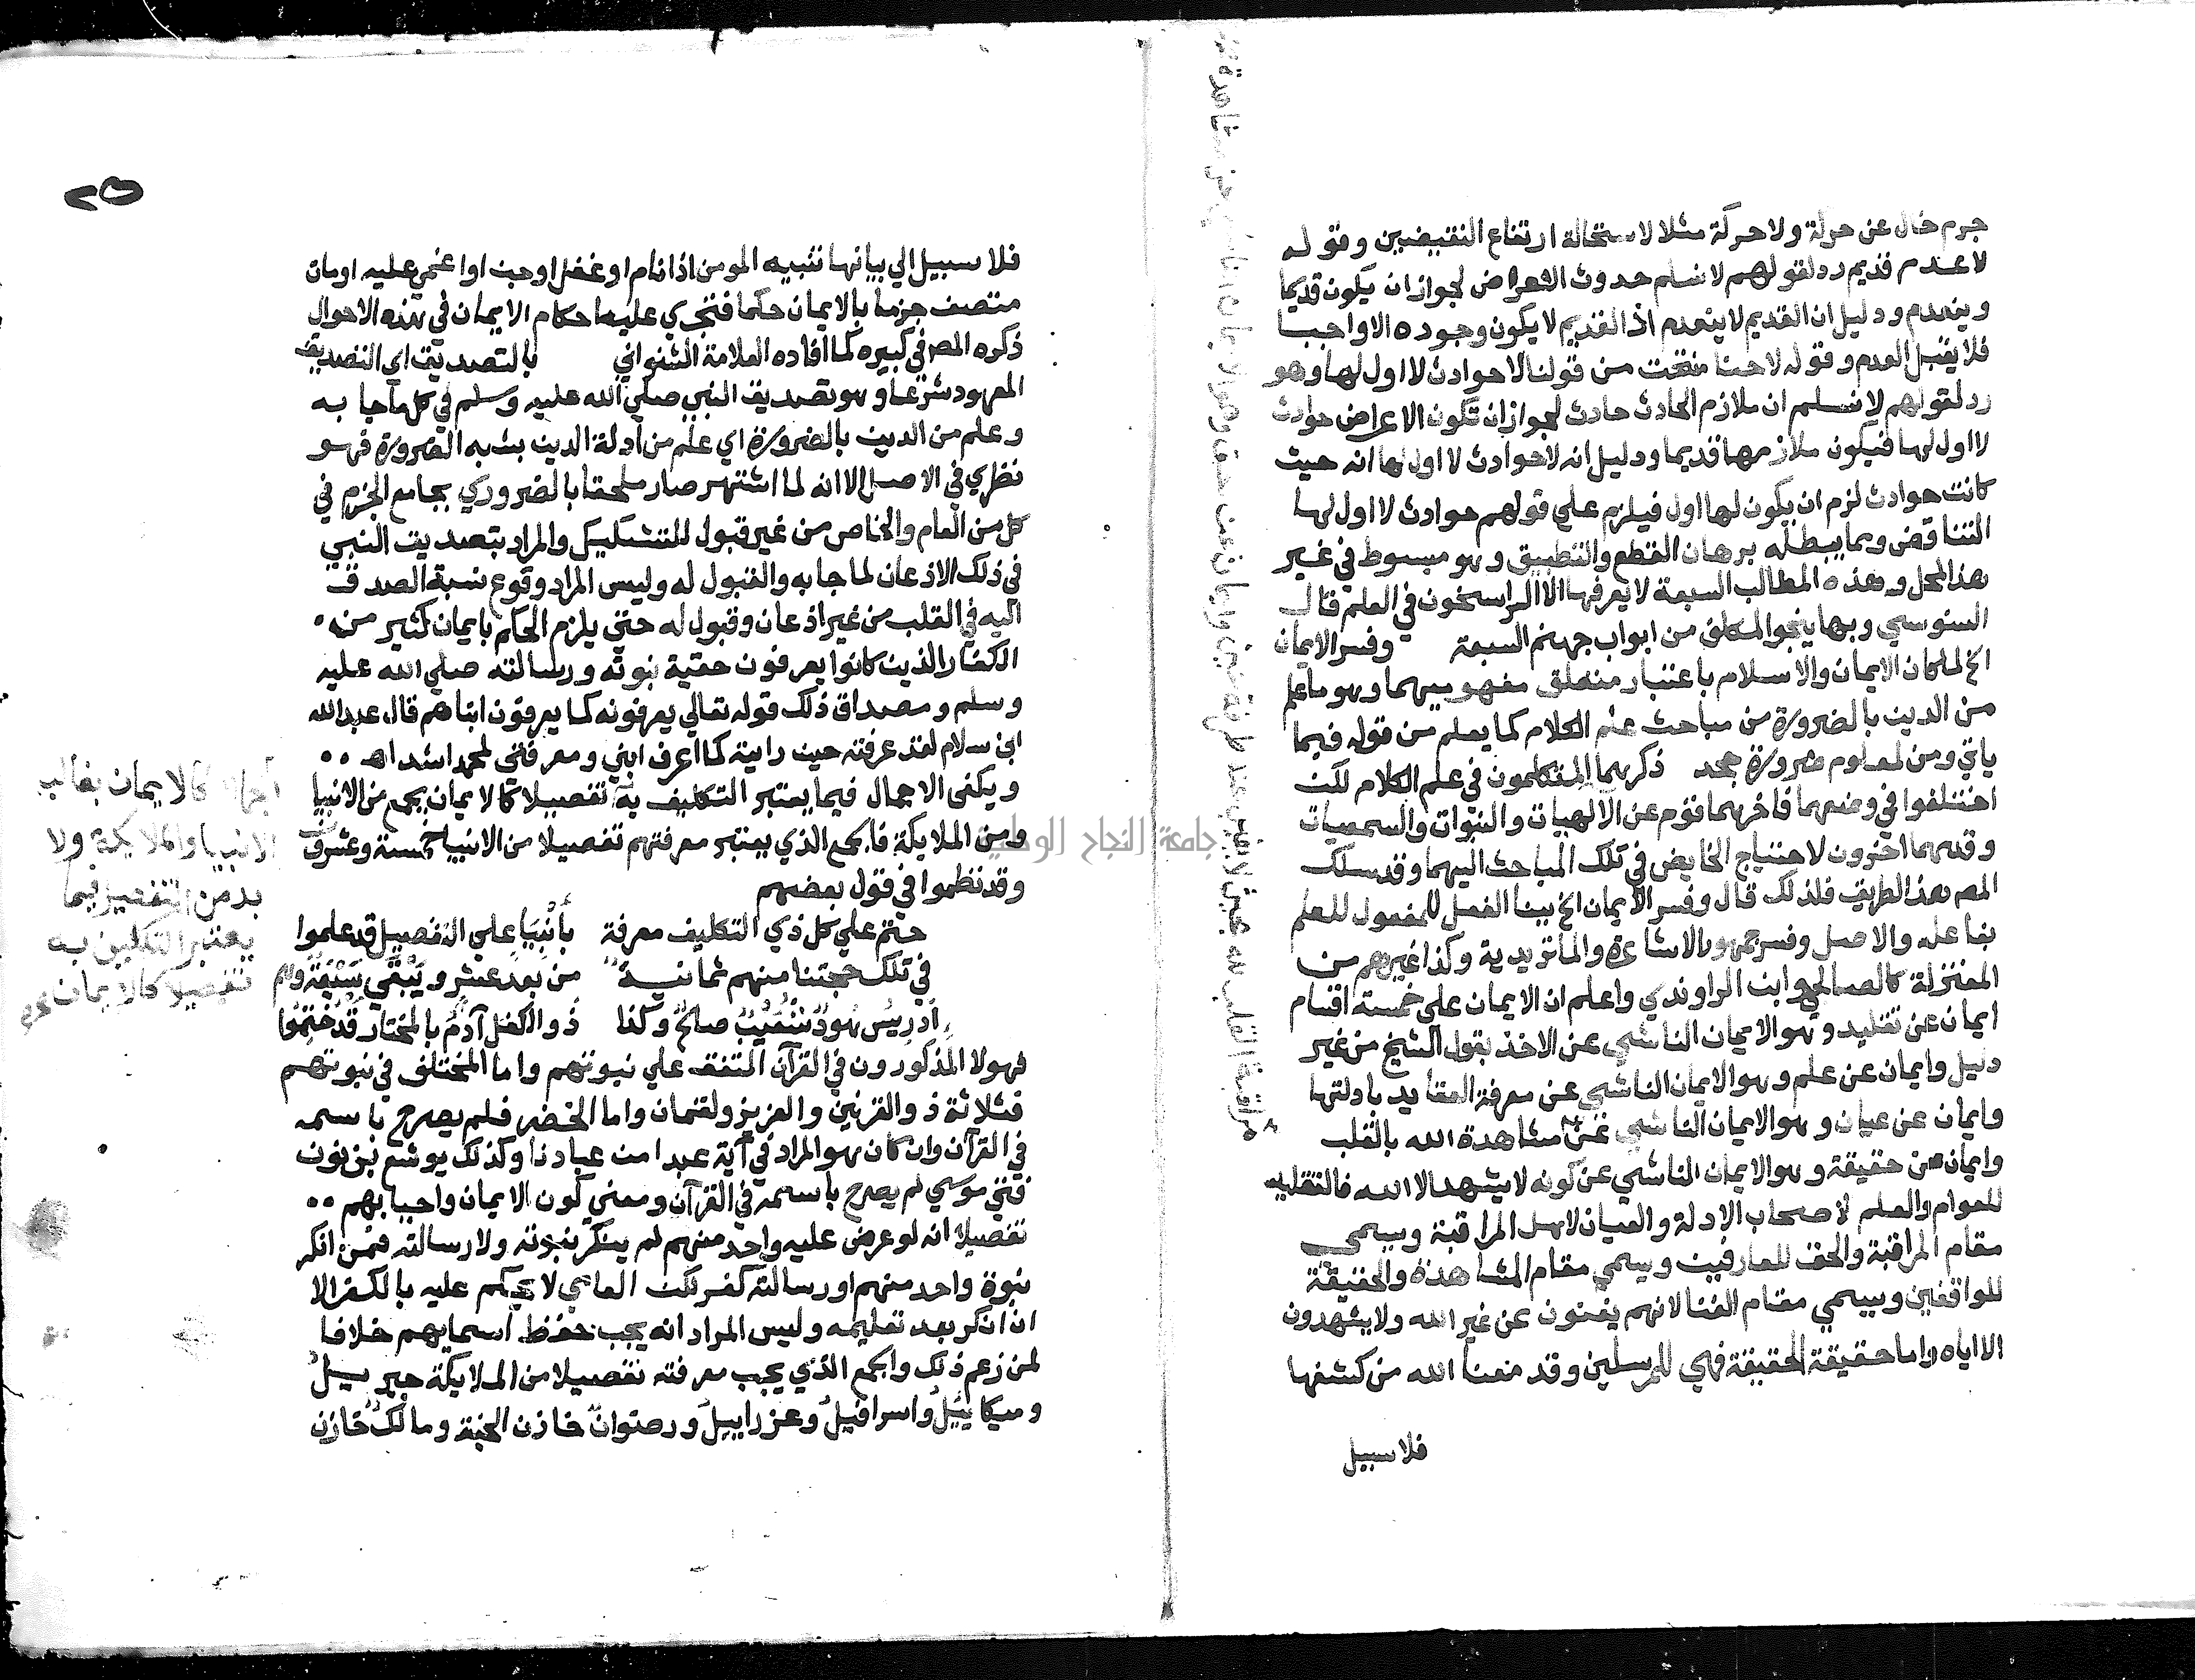 جرم خال عن حركة ولا حركة مثلا لاستحالة ارتفاع النقيضين وقوله
لا عدم قديم رد لقولهم لا نسلم حدوث الاعراض لجواز ان يكون قديما
وينعدم ودليل ان القديم لا ينعدم اذ القديم لا يكون وجوده الا واجبا
فلا يقبل العدم وقوله لا حنا منحت من قولنا لا حوادث لا اول لها وهو
رد لقولهم لا نسلم ان ملازم الحادث حادث لجواز ان تكون الاعراض حوادث
لا اول لها فيكون ملازمها قديما ودليل انه لا حوادث لا اول لها انه حيث
كانت حوادث لزم ان يكون لها اول فيلزم علي قولهم حوادث لا اول لها
التناقض ومما يبطله برهان القطع والتطبيق وهو مبسوط في غير
هذا المحل وهذه المطالب السبعة لا يعرفها الا الراسخون في العلم قال
السنوسي وبها ينجو المكلف من ابواب جهنم السبعة وفسر الايمان
الخ لما كان الايمان والاسلام باعتبار متعلق مفهوميهما وهو ما علم
من الدين بالضرورة من مباحث علم الكلام كما يعلم من قوله فيما
ياتي ومن لمعلوم ضرورة جحد ذكرهما المتكلمون في علم الكلام لكن
اختلفوا في وضعهما فاخرهما قوم عن الالهيات والنبوات والسمعيات
وقدمهما اخرون لاحتياج الخايض في تلك المباحث اليهما وقد سلك
المصر هذا الطريق فلذلك قال وفسر الايمان الخ ببنا الفعل للمفعول للعلم
بفاعله والاصل وفسر جمهور الاشاعرة والماتريدية وكذا غيرهم من
المعتزلة كالصالحي وابن الراوندي واعلم ان الايمان علي خمسة اقسام
ايمان عن تقليد وهو الايمان الناشي عن الاخذ بقول الشيخ من غير
دليل وايمان عن علم وهو الايمان الناشي عن معرفة العقايد بادلتها
وايمان عن عيان وهو الايمان الناشي عن مشاهدة الله بالقلب
وايمان عن حقيقة وهو الايمان الناشي عن كونه لا يشهد الا الله فالتقليد
للعوام والعلم لاصحاب الادلة والعيان لاهل المراقبة ويسمي
مقام المراقبة والحق للعارفين ويسمي مقام المشاهدة والحقيقة
للواقفين ويسمي مقام الفنا لانهم يفنون عن غير الله ولا يشهدون
الا اياه واما حقيقة الحقيقة فهي للمرسلين وقد منعنا الله من كشفها
فلا سبيل
٢٥
فلا سبيل الي بيانها تنبيه المومن اذا نام او غفل او جن او اغمي عليه او مات
متصف جزما بالايمان حكما فتجري عليه احكام الايمان في هذه الاحوال
ذكره المصر في كبيره كما افاده العلامة الشنواني بالتصديق اي التصديق
المعهود شرعا وهو تصديق النبي صلي الله عليه وسلم في كل ما جا به
وعلم من الدين بالضرورة اي علم من ادلة الدين يشبه الضرورة فهو
نظري في الاصل الا انه لما اشتهر صار ملحقا بالضروري بجامع الجزم في
كل من العام والخاص من غير قبول للتشكيك والمراد بتصديق النبي
في ذلك الاذعان لما جا به والقبول له وليس المراد وقوع نسبة الصدق
اليه في القلب من غير اذعان وقبول له حتي يلزم الحكم بايمان كثير من
الكفار الذين كانوا يعرفون حقية نبوته ورسالته صلي الله عليه
وسلم ومصداق ذلك قوله تعالي يعرفونه كما يعرفون ابناهم قال عبد الله
ابن سلام لقد عرفته حين رايته كما اعرف ابني ومعرفتي لمحمد اشد اهـ
ويكفى الاجمال فيما يعتبر التكليف به تفصيلا كالايمان بجمع من الانبيا
ومن الملايكة فالجمع الذي يعتبر معرفتهم تفصيلا من الانبيا خمسة وعشرون
وقد نظموا في قول بعضهم
حتم علي كل ذي التكليف معرفة بأنبيا علي التفصيل قد علموا
في تلك حجتنا منهم ثمانية من بعد عشر ويبقي سبعة وهم
إدريس هود شعيب صالح وكذا ذو الكفل آدم بالمختار قد ختموا
فهولا المذكورون في القرآن المتفق علي نبوتهم واما المختلف في نبوتهم
فثلاثة ذو القرنين والعزيز ولقمان واما الخضر فلم يصرح باسمه
في القرآن وان كان هو المراد في آية عبدا من عبادنا وكذلك يوشع بن نون
فتي موسي لم يصرح باسمه في القرآن ومعني كون الايمان واجبا بهم
تفصيلا انه لو عرض عليه واحد منهم لم ينكر نبوته ولا رسالته فمن انكر
نبوة واحد منهم او رسالته كفر لكن العامي لا يحكم عليه بالكفر الا
ان انكر بعد تعليمه وليس المراد انه يجب حفظ اسمايهم خلافا
لمن زعم ذلك والجمع الذي يجب معرفته تفصيلا من الملايكة جبريل
وميكاييل واسرافيل وعزراييل ورضوان خازن الجنة ومالك خازن
كالايمان بغالب
الانبيا والملايكة ولا
بد من التفصيل فيما
يعتبر التكليف به
تفصيلا كالايمان بجمع
جامعة النجاح الوطنية